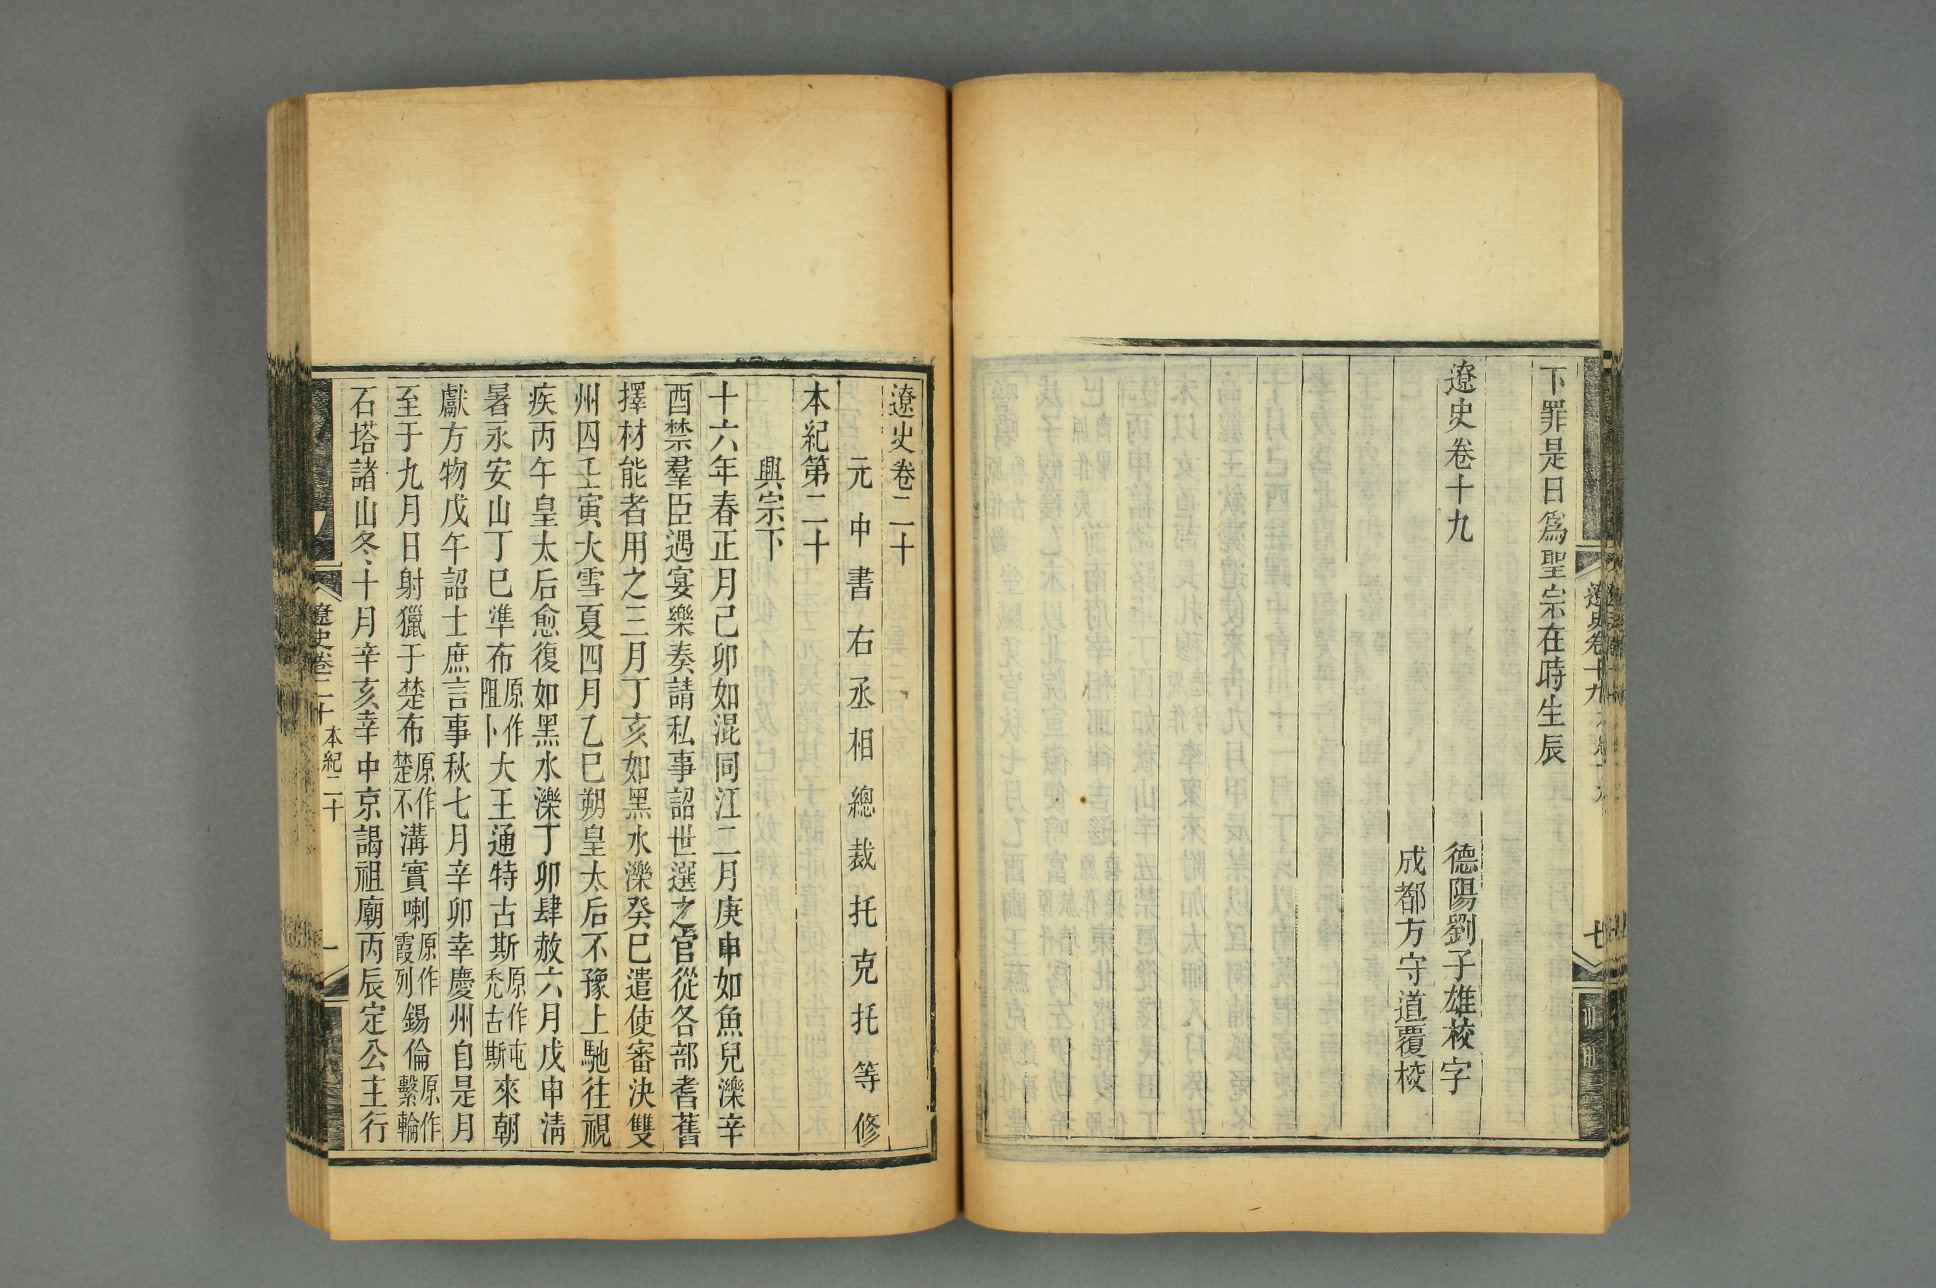 下罪是日爲聖宗在時生辰
遼史卷十九
德陽劉子雄校字
成都方守道覆校
遼史卷十九
七
遼史卷二十
元中書右丞相總裁托克托等修
本紀第二十
興宗下
十六年春正月己卯如混同江二月庚申如魚兒濼辛
酉禁羣臣遇宴樂奏請私事詔世選之官從各部耆舊
擇材能者用之三月丁亥如黑水濼癸巳遣使審決雙
州囚壬寅大雪夏四月乙巳朔皇太后不豫上馳往視
疾丙午皇太后愈復如黑水濼丁卯肆赦六月戊申淸
暑永安山丁巳準布原作阻卜大王通特古斯原作屯禿古斯來朝
獻方物戊午詔士庶言事秋七月辛卯幸慶州自是月
至于九月日射獵于楚布原作楚不溝實喇原作霞列錫倫原作繫輪
石塔諸山冬十月辛亥幸中京謁祖廟丙辰定公主行
遼史卷二十
本紀二十
一